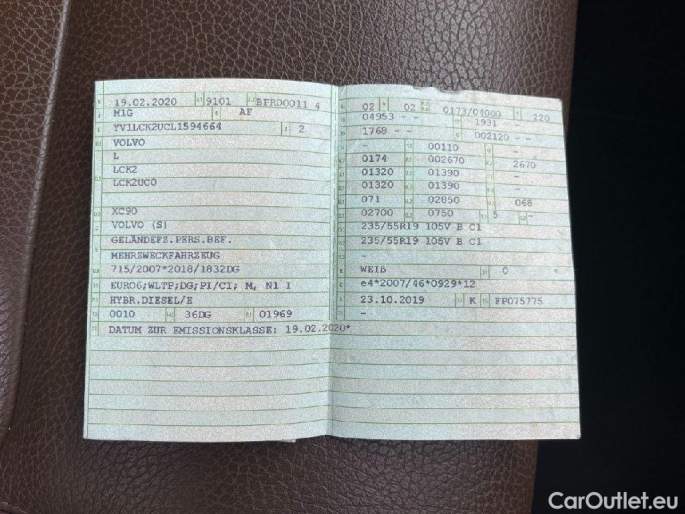 19.02.2020 9101 BFRD0011 4
M1G AF
YV1LCK2UCL1594664 2
VOLVO
L
LCK2
LCK2UC0
XC90
VOLVO (S)
GELÄNDEFZ.PERS.BEF.
MEHRZWECKFAHRZEUG
715/2007*2018/1832DG
EURO6;WLTP;DG;PI/CI; M, N1 I
HYBR.DIESEL/E
0010 36DG 01969
DATUM ZUR EMISSIONSKLASSE: 19.02.2020*
02 02 0173/04000 220
04953 - - 1931 -
1768 - - 002120 - -
- 00110 -
0174 002670 2670
01320 01390 -
01320 01390 -
071 02850 068
02700 0750 5 -
235/55R19 105V B C1
235/55R19 105V B C1
-
WEIß 0
e4*2007/46*0929*12
23.10.2019 K FP075775
-
CarOutlet.eu